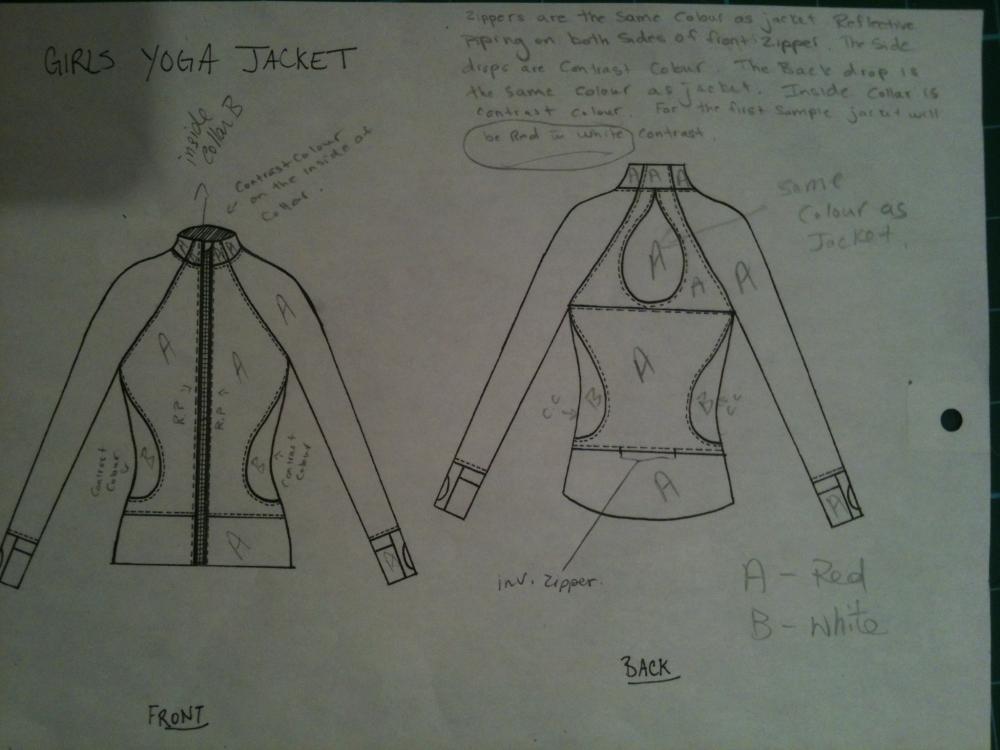 GIRLS YOGA JACKET
Zippers are the Same Colour as jacket Reflective
Piping on both Sides of front Zipper. The Side
drops are Contrast Colour. The Back drop is
the same colour as jacket. Inside Collar is
contrast colour. For the first Sample jacket will
be Red w white contrast.
inside
Collar B
Contrast Colour
on the inside of
Collar.
A A A
A
A
A
R.P
R.P
B
B
Contrast
Colour
Contrast
Colour
A
A
FRONT
A A A
Same
Colour as
Jacket.
A
A
A
A
B
B
CC
CC
A
A
inv. Zipper.
A - Red
B - White
BACK